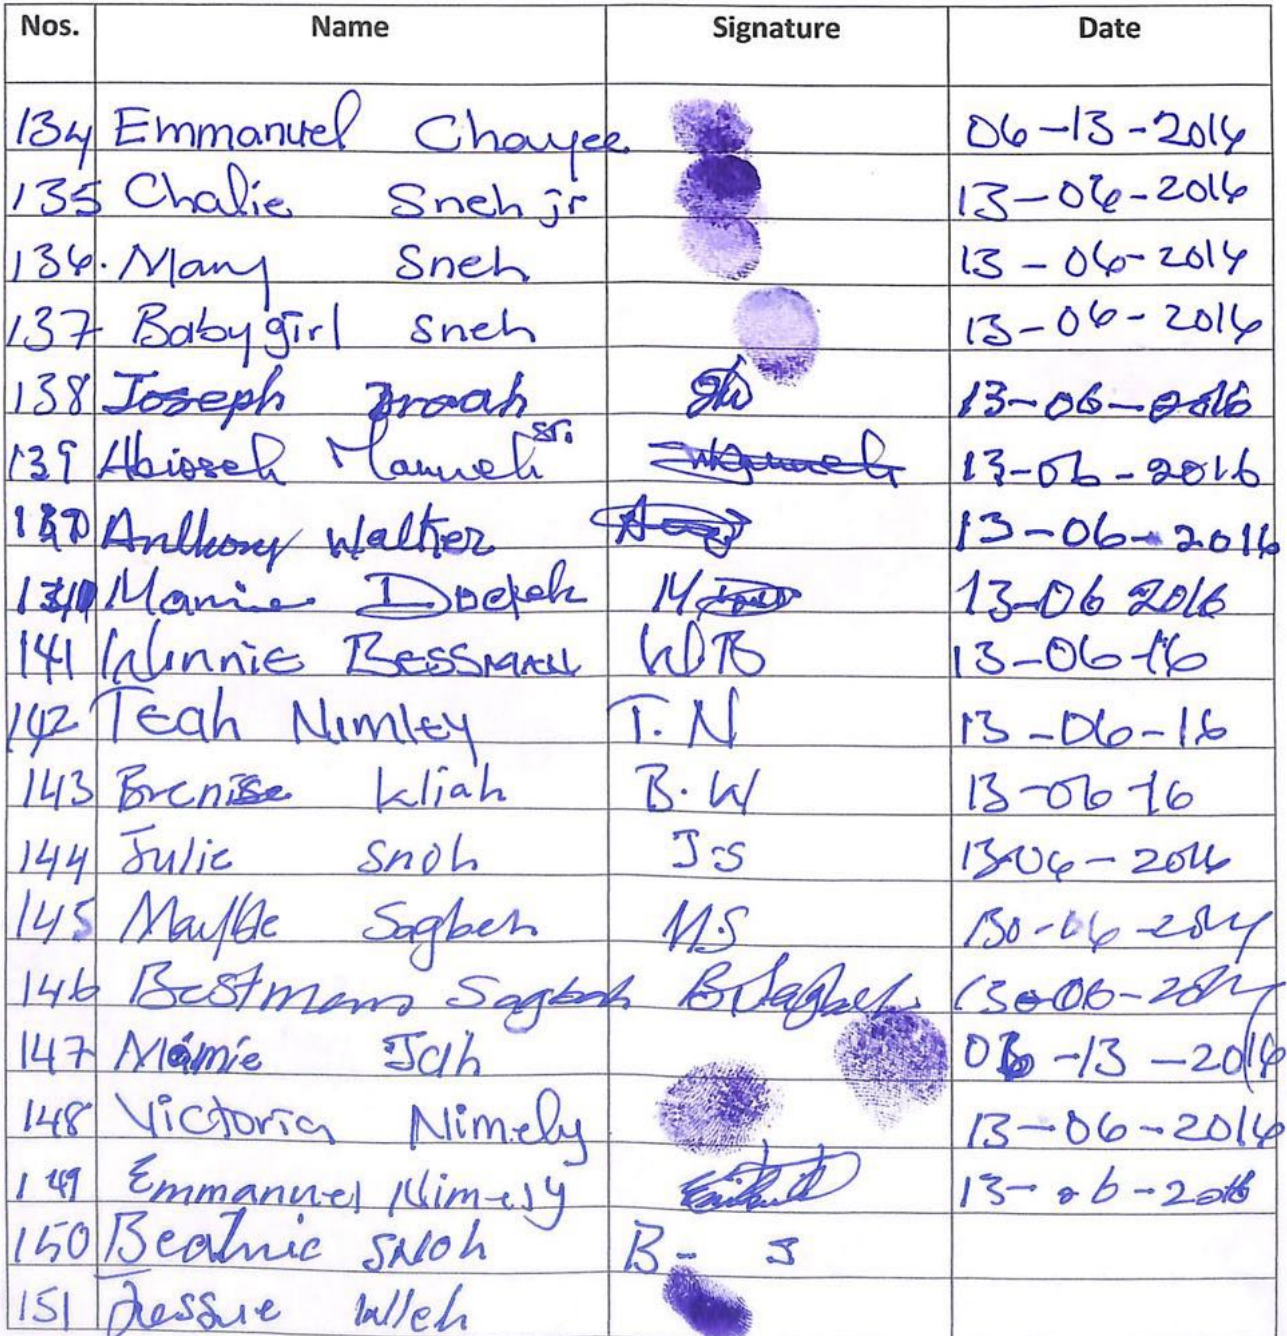 Nos. Name Signature Date
134 Emmanuel Chayee 06-13-2016
135 Chalie Sneh jr 13-06-2016
136. Mary Sneh 13-06-2016
137 Babygirl Sneh 13-06-2016
138 Joseph 13-06-2016
139 Abioseh Mameh sr. 13-06-2016
Anthony Walker 13-06-2016
Mamie 13-06 2016
141 Winnie BESSMAN W B 13-06-16
142 TEAh NimlEy T. N 13-06-16
143 Brenise Kliah B. W 13-06-16
144 Julie Snoh J.S 13-06-2016
145 Sagbeh M.S
146 Bestman Sagbeh B. Sagbeh
147 Mamie Jah 06-13-2016
148 Victoria Nimely 13-06-2016
149 Emmanuel Nimely 13-06-2016
150 Beatrice SNoh B- S
151 Jessie Weh